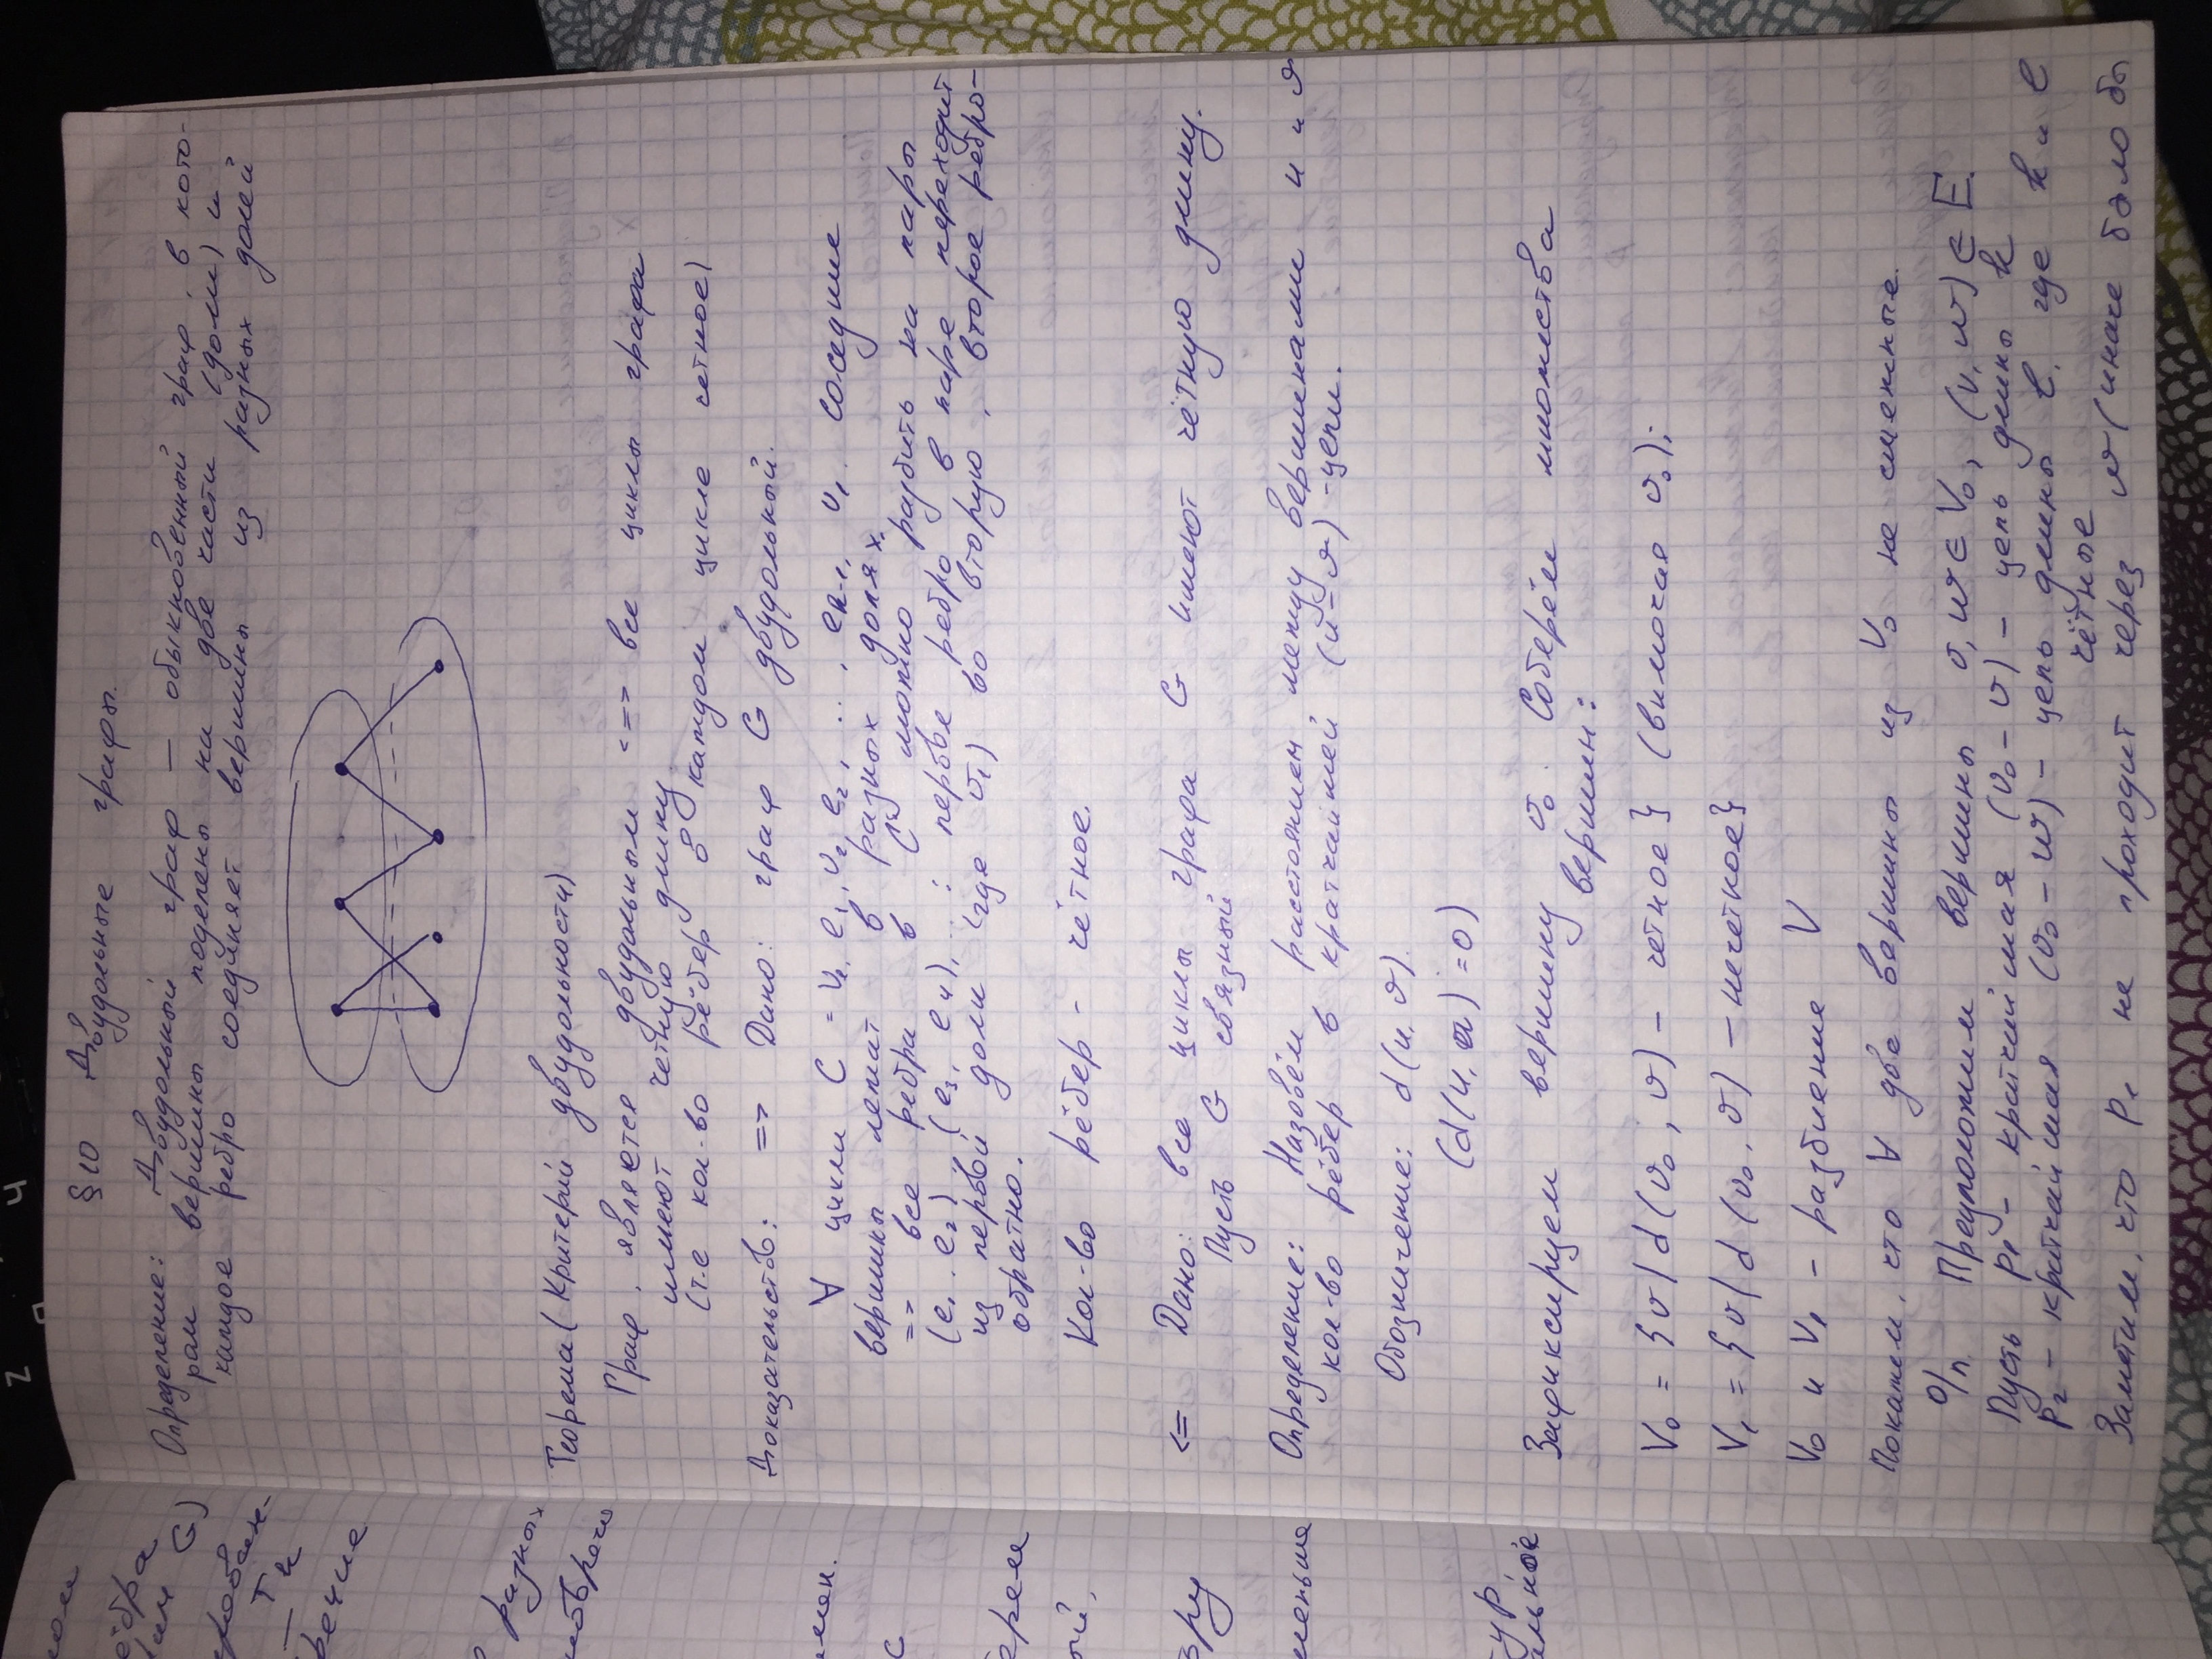 2
4
ном
ребра
G)
Тк
речие
разных
мен.
с
ерем
ый,
меньше
ур
альное
§10 Двудольные графы.
Определение: Двудольный граф — обыкновенный граф, в кото-
ром вершины поделены на две части (доли) и
каждое ребро соединяет вершины из разных долей
Теорема (Критерий двудольности)
Граф, являются двудольным <=> все циклы графа
имеют четную длину.
(т.е кол-во рёбер в каждом цикле четное)
Доказательство: => Дано: граф G двудольный.
∀ цикли C = v₁, e₁, v₂, e₂, ..., eₙ₋₁, v₁. соседние
вершины лежат в разных долях.
=> все ребра в C можно разбить на пары
(e₁, e₂), (e₃, e₄), ... : первое ребро в паре переходит
из первой доли (где v₁) во вторую, второе ребро-
обратно.
Кол-во рёбер - чётное.
<= Дано: все циклы графа G имеют чётную длину.
Пусть G связный
Определение: Назовём расстоянием между вершинами u и v
кол-во рёбер в кратчайшей (u-v)-цепи.
Обозначение: d(u, v).
(d(u, u) = 0)
Зафиксируем вершину v₀. Соберём множества
вершин:
V₀ = {v | d(v₀, v) - четное} (включая v₀);
V₁ = {v | d(v₀, v) - нечетное}
V₀ и V₁ - разбиение V
Покажем, что ∀ две вершины из V₀ не смежные.
О/п. Предположим вершины v, w ∈ V₀, (v, w) ∈ E.
Пусть P₁ - кратчайшая (v₀ - v) - цепь длины k
P₂ - кратчайшая (v₀ - w) - цепь длины l, где k и l
чётные
Заметим, что P₁ не проходит через w (иначе было бы